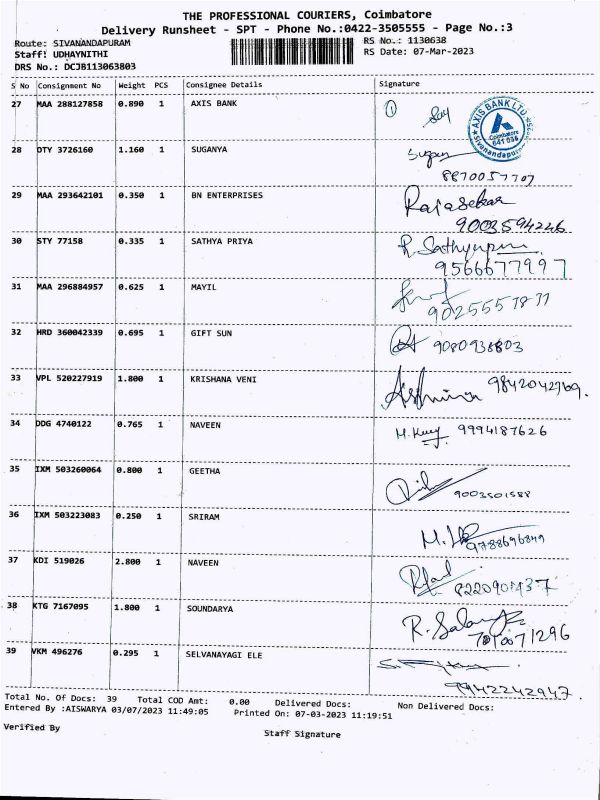 THE PROFESSIONAL COURIERS, Coimbatore
Delivery Runsheet - SPT - Phone No.:0422-3505555 - Page No.:3
Route: SIVANANDAPURAM
RS No.: 1130638
Staff: UDHAYNITHI
RS Date: 07-Mar-2023
DRS No.: DCJB113063803
S No Consignment No Weight PCS Consignee Details Signature
27 MAA 288127858 0.890 1 AXIS BANK 1
AXIS BANK LTD
Coimbatore
641 036
Sivanandapuram
28 DTY 3726160 1.160 1 SUGANYA
8870057707
29 MAA 293642101 0.350 1 BN ENTERPRISES Rajasekar
9003594226
30 STY 77158 0.335 1 SATHYA PRIYA
9566677997
31 MAA 296884957 0.625 1 MAYIL
32 HRD 360042339 0.695 1 GIFT SUN 9080938803
33 VPL 520227919 1.800 1 KRISHANA VENI 9842042769.
34 DDG 4740122 0.765 1 NAVEEN 9994187626
35 IXM 503260064 0.800 1 GEETHA
9003501588
36 IXM 503223083 0.250 1 SRIRAM
9788696849
37 KDI 519026 2.800 1 NAVEEN
38 KTG 7167095 1.800 1 SOUNDARYA
39 VKM 496276 0.295 1 SELVANAYAGI ELE
9942242947.
Total No. Of Docs: 39 Total COD Amt: 0.00 Delivered Docs: Non Delivered Docs:
Entered By :AISWARYA 03/07/2023 11:49:05 Printed On: 07-03-2023 11:19:51
Verified By
Staff Signature